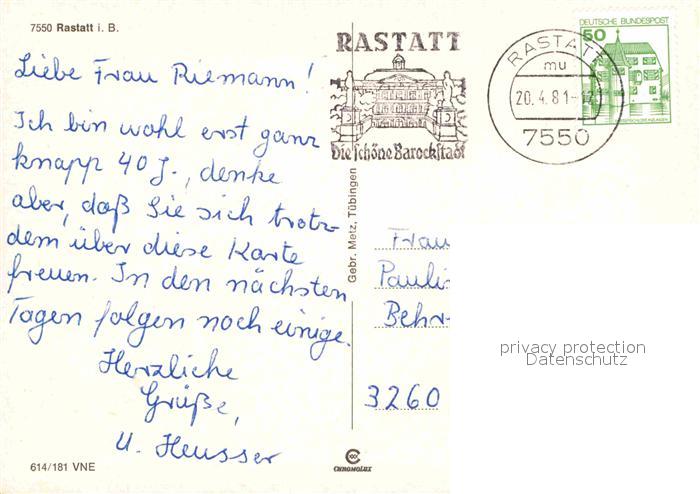 7550 Rastatt i. B.
Liebe Frau Riemann!
Ich bin wohl erst ganz
knapp 40 J., denke
aber, daß Sie sich trotz-
dem über diese Karte
freuen. In den nächsten
Tagen folgen noch einige.
Herzliche
Grüße,
U. Heusser
614/181 VNE
Gebr. Metz, Tübingen
CHROMOLUX
RASTATT
Die schöne Barockstadt
RASTATT
mu
20.4.81-17
7550
DEUTSCHE BUNDESPOST
50
Frau
Pauli
Behr
3260
privacy protection
Datenschutz